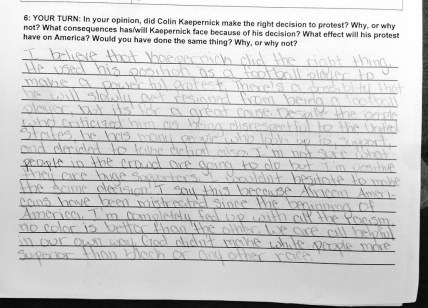 6: YOUR TURN: In your opinion, did Colin Kaepernick make the right decision to protest? Why, or why
not? What consequences has/will Kaepernick face because of his decision? What effect will his protest
have on America? Would you have done the same thing? Why, or why not?
I believe that Kaepernick did the right thing.
He used his position as a football player to
make a power ful protest. There's a possibility that
he will slowly get resigned from being a football
player but its for a great cause. Despite the people
who criticized him as being disrespectful to the United
States, he has many people who to support
and decided to kneel I'm not sure what
people in the crowd are going to do but I'm positive
they are huge supporters. I wouldn't hesitate to make
the same decision. I say this because African Ameri-
cans have been mistreated since the beginning of
America. I'm completely fed up with all the racism
no color is better than the other. We are all helpful
in our own way. God didn't make white people more
superior than black or any other race.